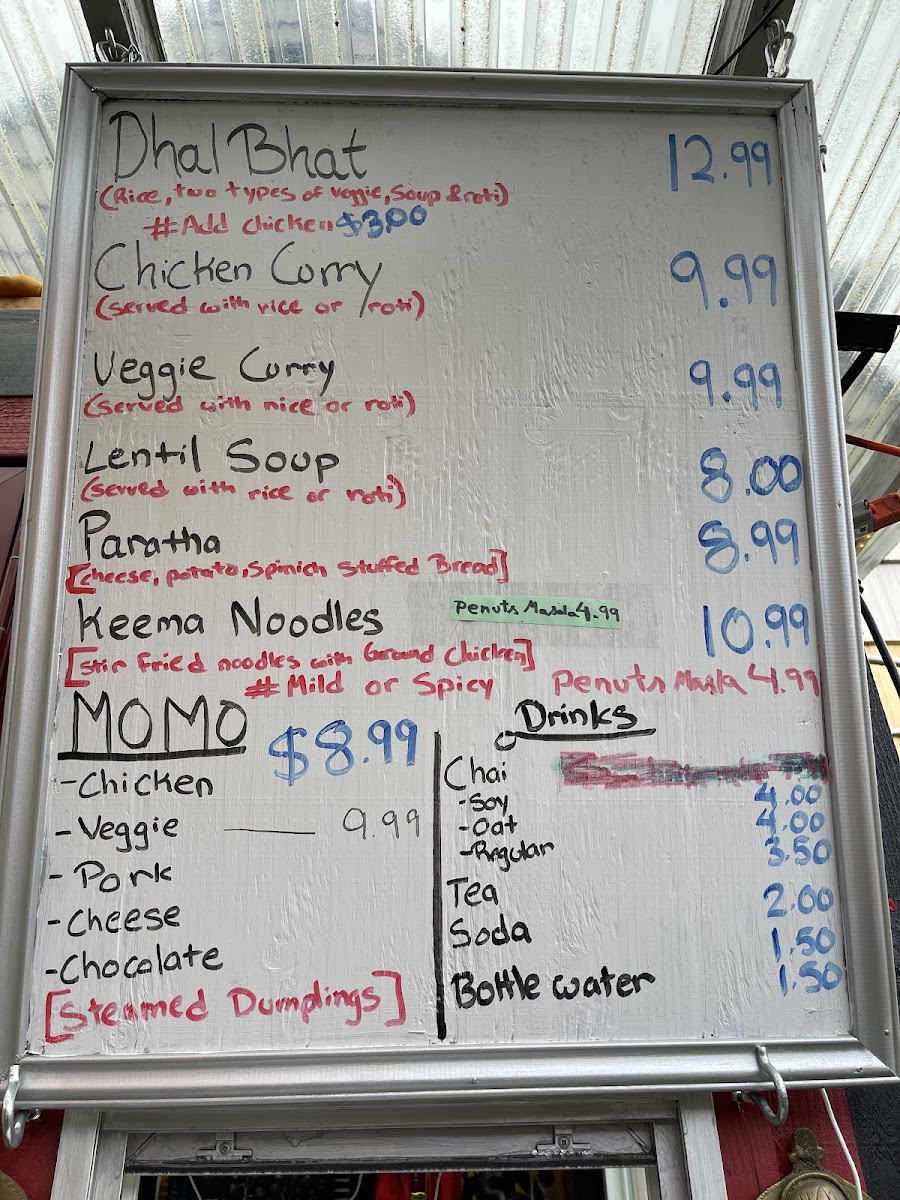 Dhal Bhat 12.99
(Rice, two types of veggie, Soup & roti)
#Add chicken $3.00
Chicken Curry 9.99
(served with rice or roti)
Veggie Curry 9.99
(served with rice or roti)
Lentil Soup 8.00
(served with rice or roti)
Paratha 8.99
[cheese, potato, Spinich Stuffed Bread]
Keema Noodles 10.99
Penuts Masala 4.99
[Stir Fried noodles with Ground Chicken]
#Mild or Spicy
Penuts Masla 4.99
MOMO $8.99
-Chicken
-Veggie — 9.99
-Pork
-Cheese
-Chocolate
[Steamed Dumplings]
Drinks
Chai
-Soy 4.00
-Oat 4.00
-Regular 3.50
Tea 2.00
Soda 1.50
Bottle water 1.50